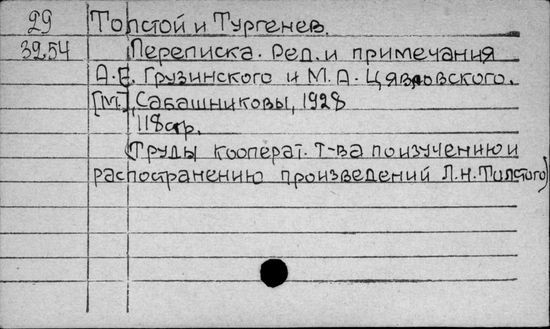 29 Толстой и Тургенев.
3254 Переписка. Ред. и примечания
А.Е. Грузинского и М.А. Цявловского.
[М.], Сабашниковы, 1928
118 стр.
(Труды кооперат. т-ва по изучению и
распостранению произведений Л.Н. Толстого)